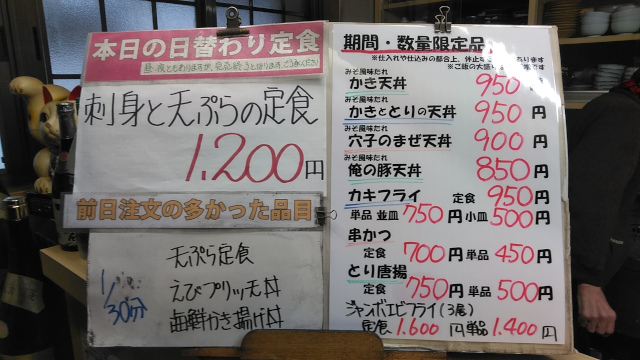 本日の日替わり定食
刺身と天ぷらの定食
1,200円
前日注文の多かった品目
1/30分
天ぷら定食
えびプリッモ丼
海鮮かき揚げ丼
期間・数量限定品
みそ風味だれ
かき天丼 950円
みそ風味だれ
かきととりの天丼 950円
みそ風味だれ
穴子のまぜ天丼 900円
みそ風味だれ
俺の豚天丼 850円
カキフライ 定食 950円
単品 並皿 750円 小皿 500円
串かつ
定食 700円 単品 450円
とり唐揚
定食 750円 単品 500円
ジャンボエビフライ(3尾)
定食 1.600円 単品 1.400円